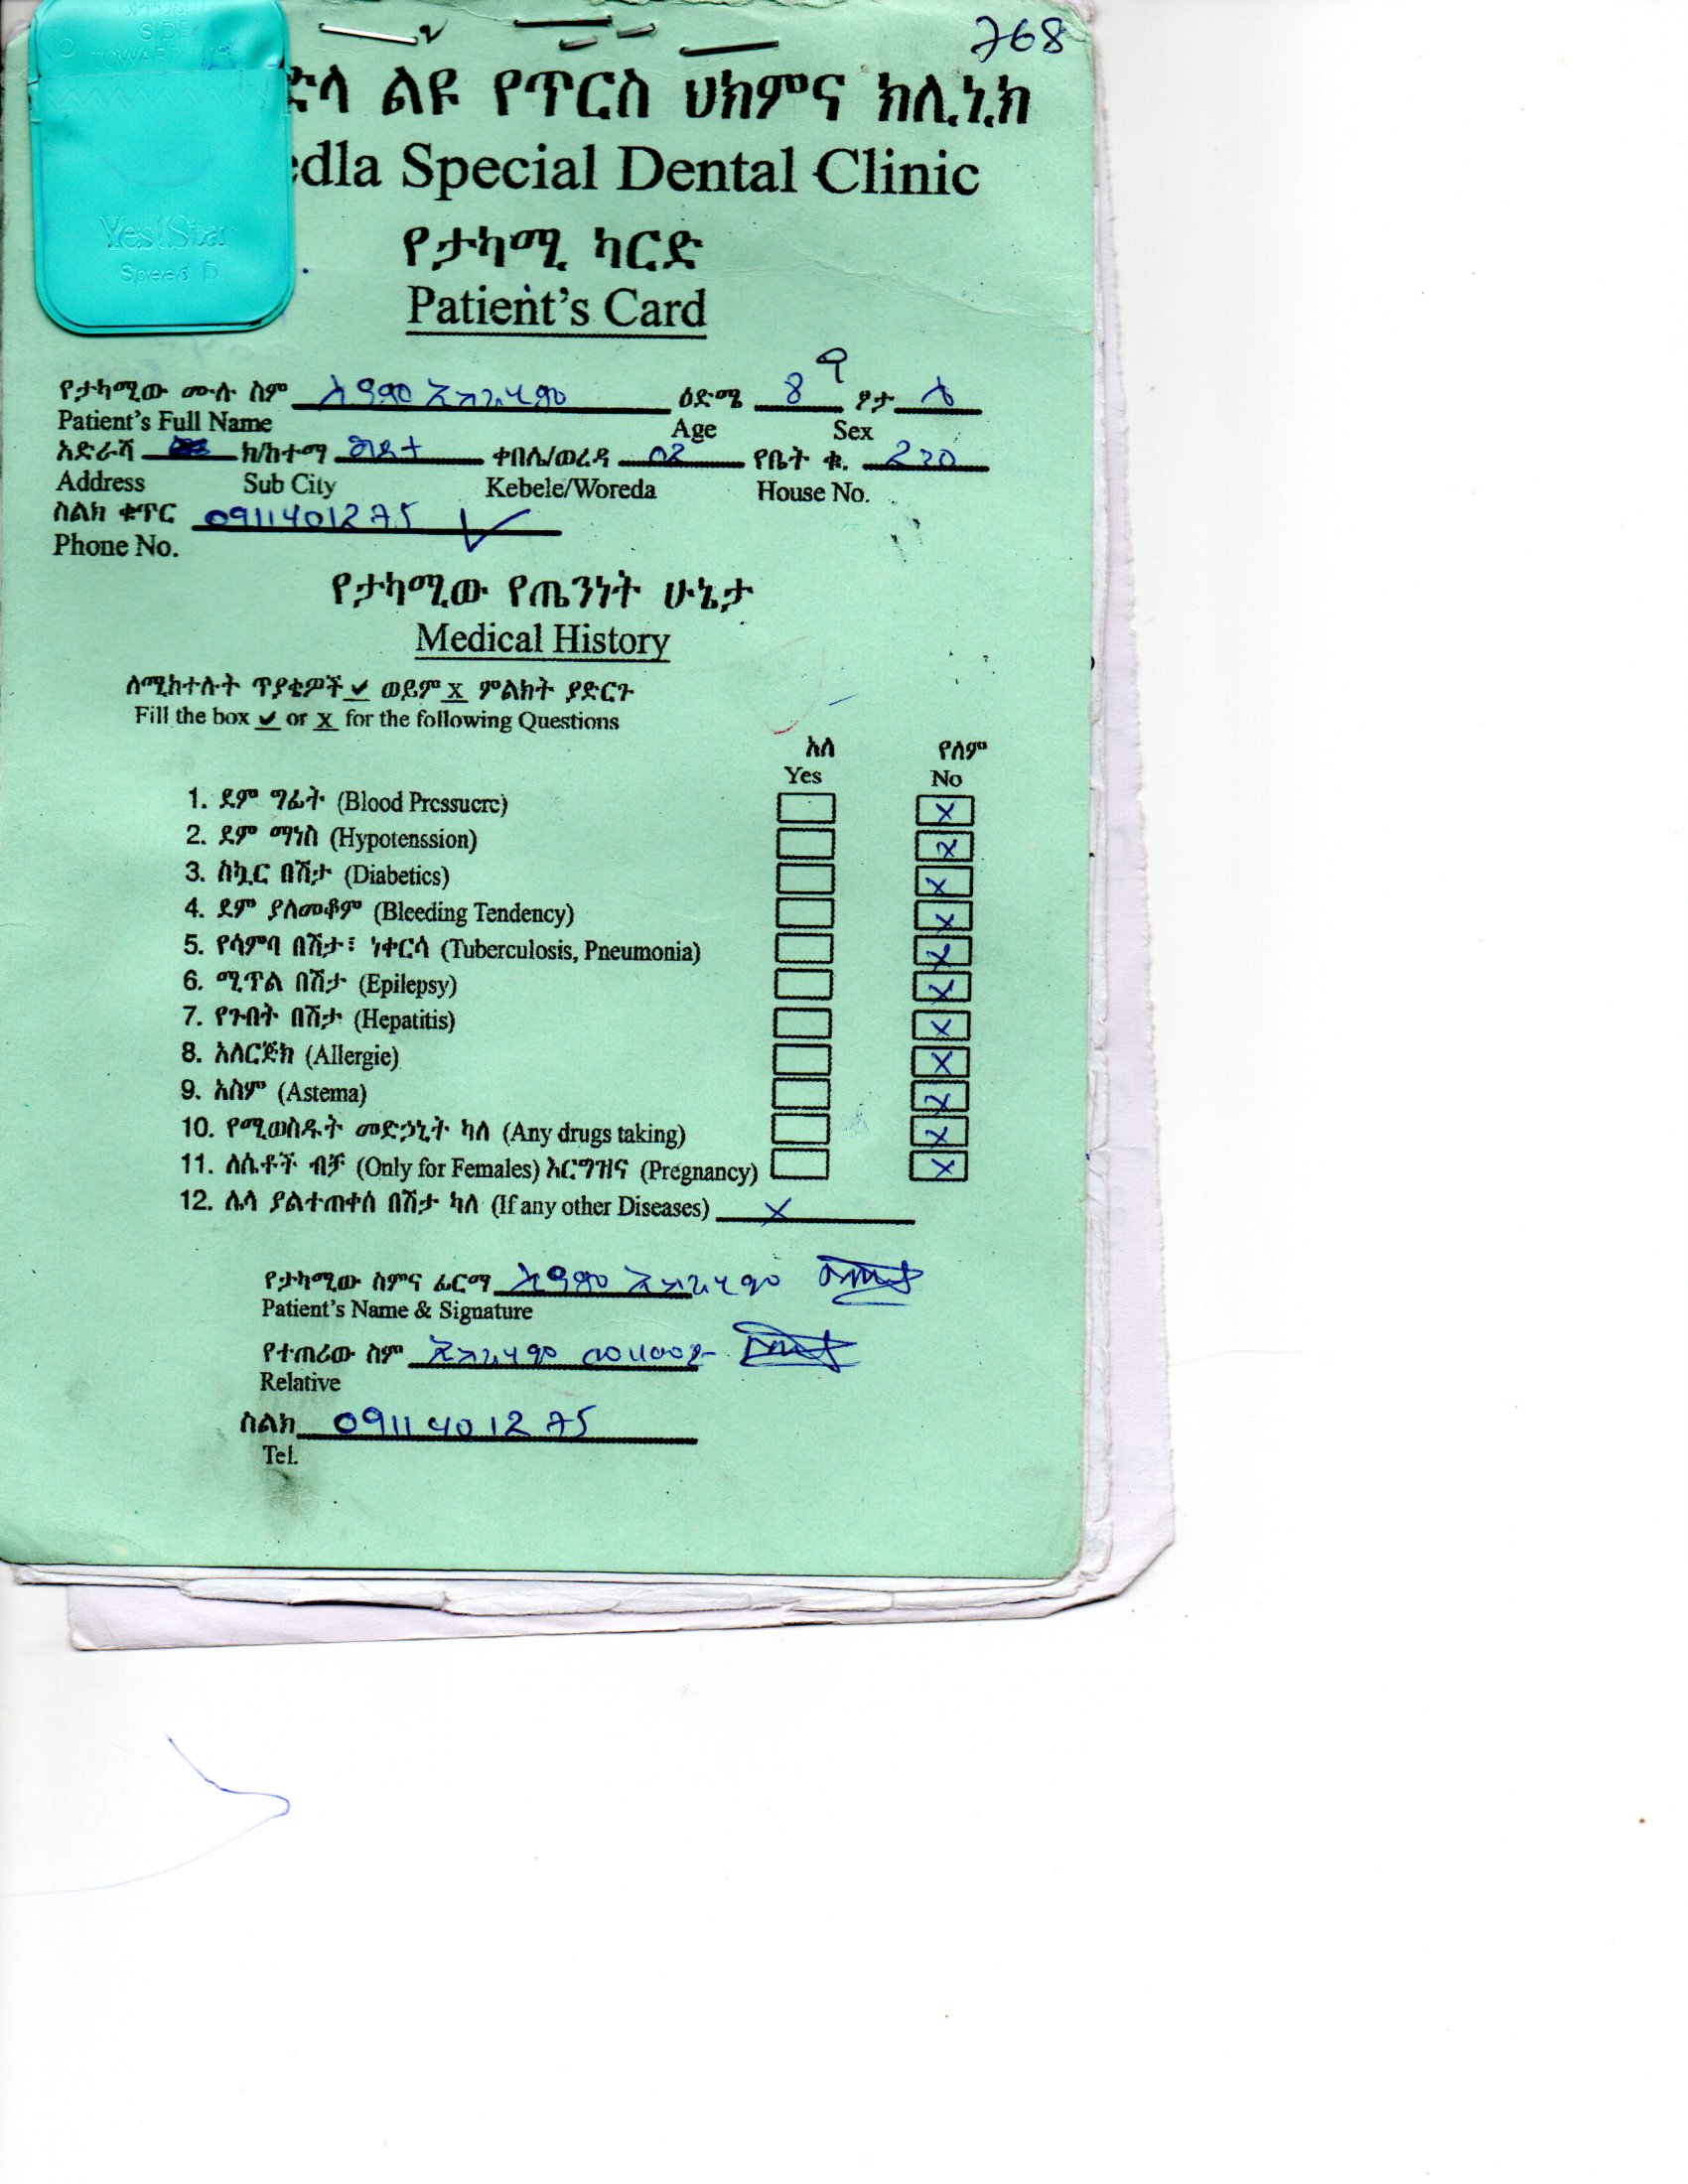 OPPOSITE
SIDE
TOWARD
Yes!Star
Speed D
768
ድላ ልዩ የጥርስ ህክምና ክሊኒክ
edla Special Dental Clinic
የታካሚ ካርድ
Patient's Card
የታካሚው ሙሉ ስም ዕድሜ 8 ፆታ
Patient's Full Name Age Sex
አድራሻ ክ/ከተማ ቀበሌ/ወረዳ 02 የቤት ቁ. 230
Address Sub City Kebele/Woreda House No.
ስልክ ቁጥር 0911401275 ✓
Phone No.
የታካሚው የጤንነት ሁኔታ
Medical History
ለሚከተሉት ጥያቄዎች ✔ ወይም x ምልክት ያድርጉ
Fill the box ✔ or x for the following Questions
አለ የለም
Yes No
1. ደም ግፊት (Blood Pressuere) x
2. ደም ማነስ (Hypotenssion) x
3. ስኳር በሽታ (Diabetics) x
4. ደም ያለመቆም (Bleeding Tendency) x
5. የሳምባ በሽታ፣ ነቀርሳ (Tuberculosis, Pneumonia) x
6. ሚጥል በሽታ (Epilepsy) x
7. የጉበት በሽታ (Hepatitis) x
8. አለርጅክ (Allergie) x
9. አስም (Astema) x
10. የሚወስዱት መድኃኒት ካለ (Any drugs taking) x
11. ለሴቶች ብቻ (Only for Females) እርግዝና (Pregnancy) x
12. ሌላ ያልተጠቀሰ በሽታ ካለ (If any other Diseases) x
የታካሚው ስምና ፊርማ
Patient's Name & Signature
የተጠሪው ስም
Relative
ስልክ 0911401275
Tel.